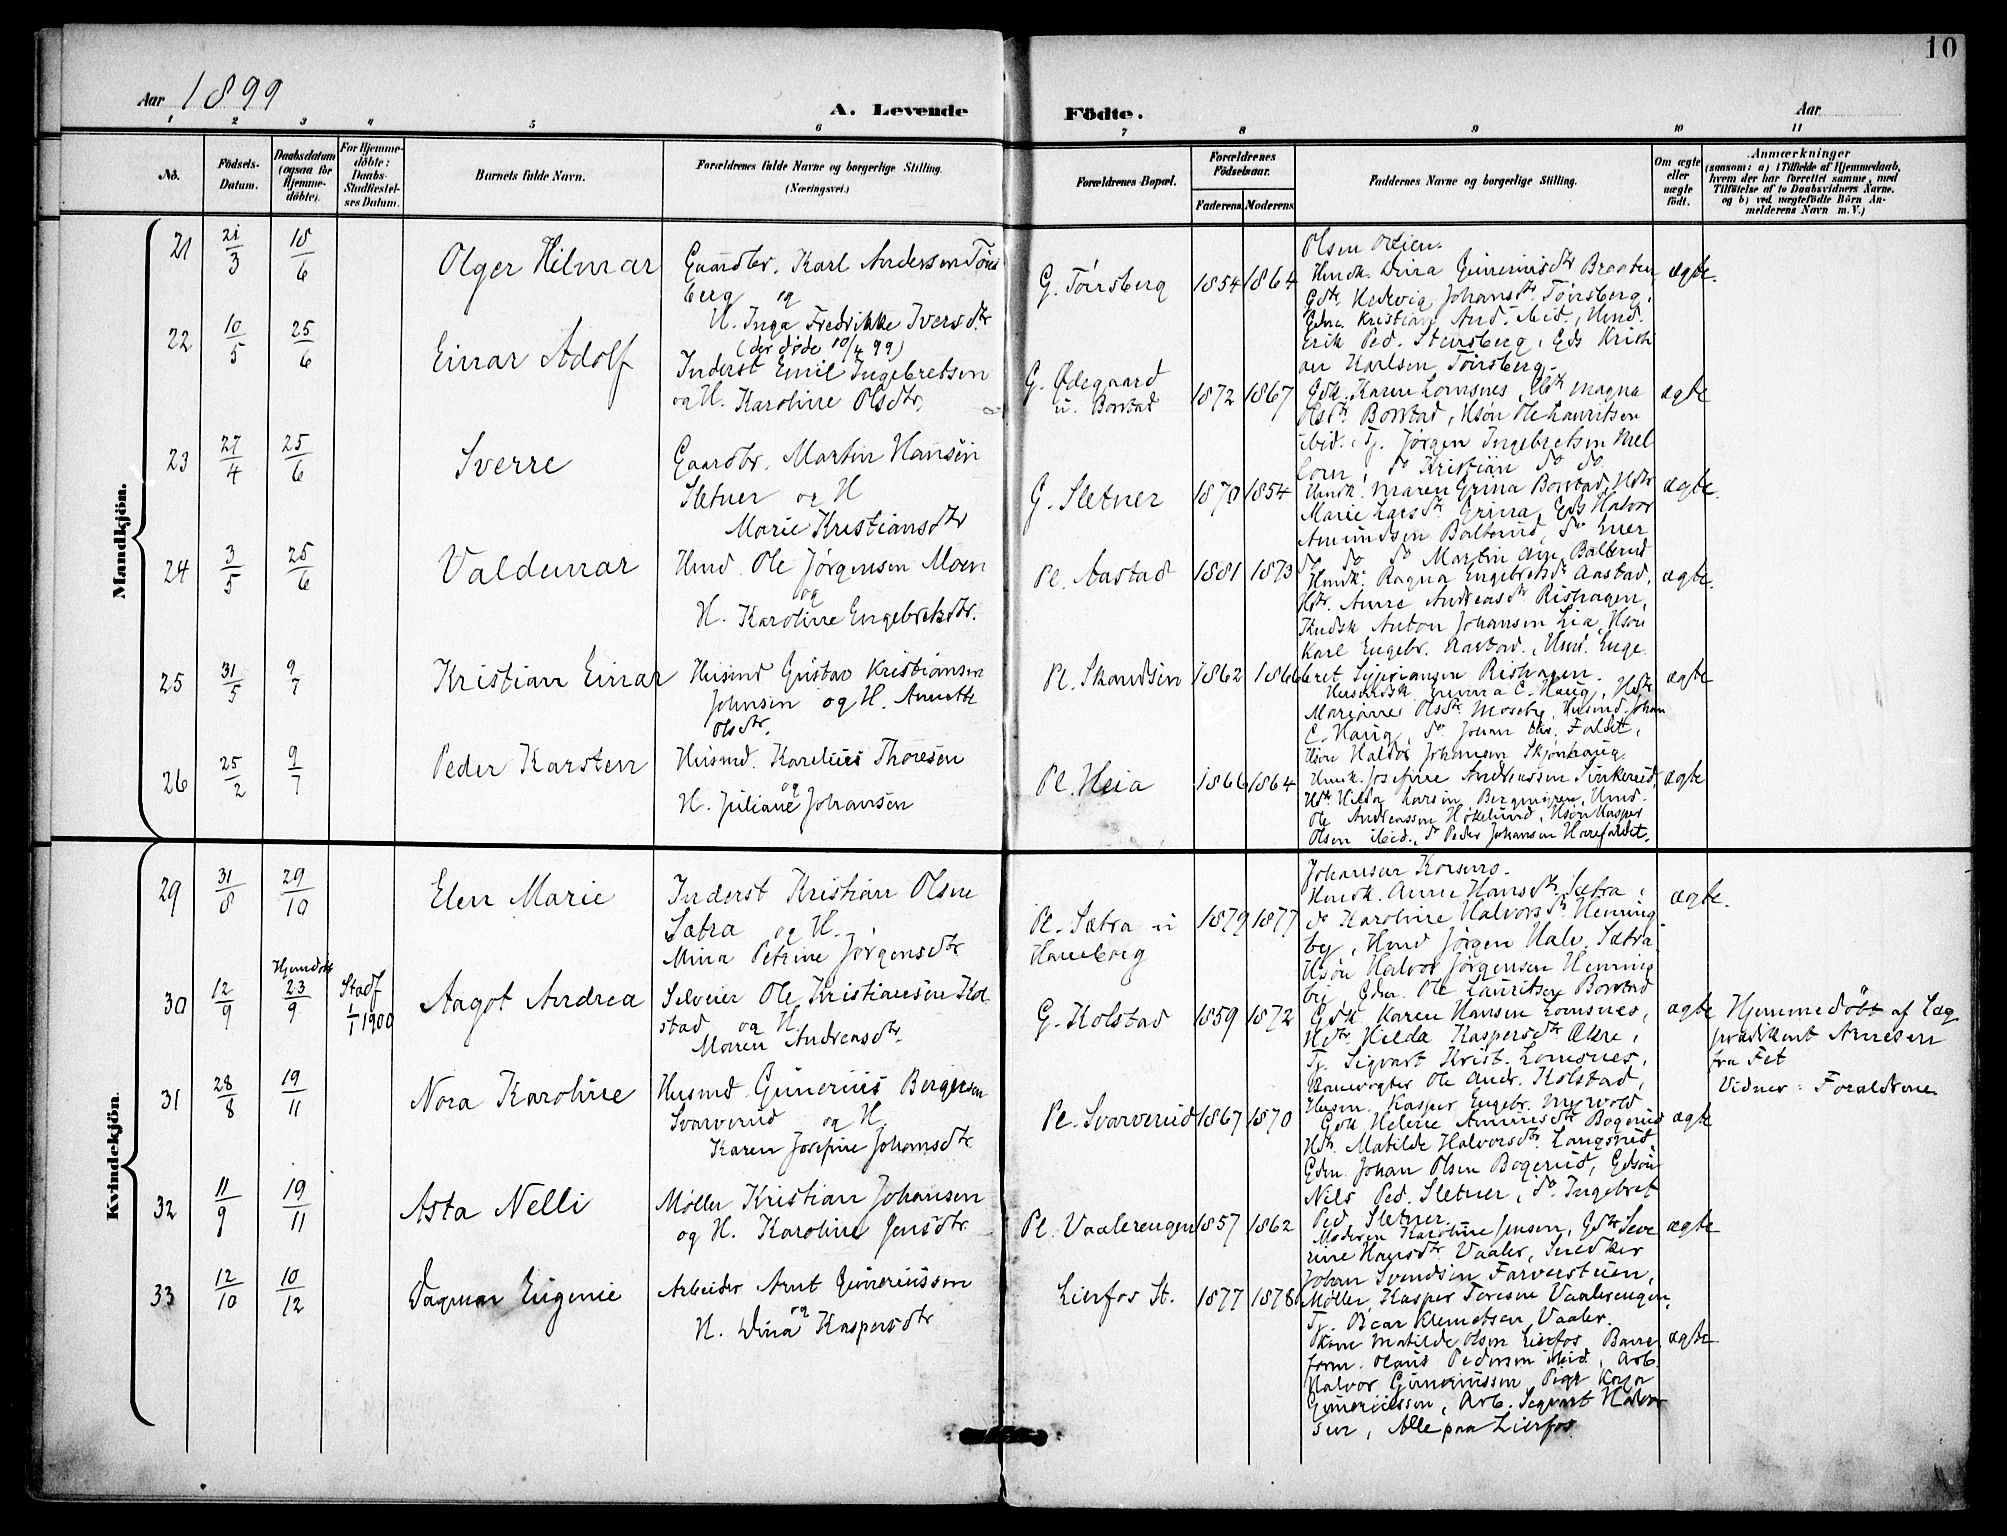 10
Aar 1899
A. Levende Födte.
Aar
1 2 3 4 5 6 7 8 9 10 11
No.
Födsels-Datum.
Daabsdatum (ogsaa for Hjemme-döbte).
For Hjemme-döbte: Daabs-Stadfæstel-ses Datum.
Barnets fulde Navn.
Forældrenes fulde Navne og borgerlige Stilling. (Næringsvei.)
Forældrenes Bopæl.
Forældrenes Födselsaar.
Faderens. Moderens.
Faddernes Navne og borgerlige Stilling.
Om ægte eller uægte födt.
Anmærkninger
(saasom: a) i Tilfælde af Hjemmedaab, hvem der har forrettet samme, med Tilföielse af to Daabsvidners Navne. og b) ved uægtefödte Börn An-melderens Navn m. V.)
Mandkjön.
21 21/3 18/6 Olger Hilmar
Gaardbr. Karl Andersen Tøns
berg og
H. Inga Fredrikke Iversdtr
(der døde 10/4 99)
G. Tønsberg 1854 1864
Olsen
Hmdk. Dina Gunerusdtr Braaten,
Gdtr. Hedvig Johansdtr Tønsberg,
Gdm. Kristian And. ibid., Hmd.
Erik Ped. Stensberg, Gds Krist
an Karlsen Tønsberg.
ægte.
22 10/5 25/6 Einar Adolf
Inderst Emil Ingebretsen
og H. Karoline Olsdtr,
G. Ødegaard
u. Borstad 1872 1867
Gdk. Karen Lomsnes, Hdtr Magna
Olsdtr Borstad, Hsøn Ole Lauritsen
ibid., Tj. Jørgen Ingebretsen Mel
lom, do Kristian do do.
ægte
23 27/4 25/6 Sverre
Gaardbr. Martin Hansen
Sletner og H
Marie Kristiansdtr
G. Sletner 1870 1854
Hmdk. Maren Grina Borstad, Hdtr
Marie Larsdtr Grina, Gds Halvor
Amundsen Balterud, do Iver
do do do Martin Balterud
ægte.
24 3/5 25/6 Valdemar
Hmd. Ole Jørgensen Moen
og
H. Karoline Engebretsdtr.
Pl. Aastad 1881 1873
Hmdk. Ragna Engebretsdr Aastad,
Hdtr. Anne Andreasdtr Rishagen,
Anton Johansen Lia, Hsøn
Karl Engebr. Aastad, Hmd. Enge
bret Rishagen.
ægte.
25 31/5 9/7 Kristian Einar
Husmd Gustav Kristiansen
Johnsen og H. Annette
Olsdtr.
Pl. Skandsen 1862 1866
Husmdsk. Emma C. Haug, Hdtr
Marianne Olsdtr. Moseby, Husmd. Johan
C. Haug, do Johan Chr. Faldet,
Hsøn Halvor Johansen Skjønhaug
ægte
26 25/2 9/7 Peder Karsten
Husmd. Karelius Thoresen
og
H. Juliane Johansen
Pl. Heia 1866 1864
Hmdk. Josefine Andreassen Sinkerud,
Hdtr Hilda Larsen, Hmd.
Ole Andreassen Høkelund, Hsøn Kasper
Olsen ibid., do Peder Johansen Harefaldet.
ægte
Kvindekjön.
29 31/8 29/10 Elen Marie
Inderst Kristian Olsen
Sætra og H.
Mina Petrine Jørgensdtr
Pl. Sætra u
Haneborg 1879 1877
Johansen Korsmo.
Hmdk. Anne Hansdtr Sætra,
do Karoline Halvorsdtr Henning
by, Hmd Jørgen Halv. Sætra
Hsøn Halvor Jørgensen Henning
by, Gdm. Ole Lauritsen Borstad
ægte.
30 12/9 Hjemdøbt 23/9 Stadf 1/1 1900 Aagot Andrea
Selveier Ole Kristiansen Kol
stad og H.
Maren Andreasdtr.
G. Kolstad 1859 1872
Gdk. Karen Hansen Lomsnes,
Hdtr Hilda Kaspersdtr
Tj. Sigvart Krist. Lomsnes,
Banevogter Ole Andr. Kolstad,
Husm. Kasper Engebr. Myrvold
ægte
Hjemmedöbt af Læg
prædikant Arnesen
fra Fet
Vidner: Forældrene
31 28/8 19/11 Nora Karoline
Husmd Gunerius Bergersen
Svarverud og H.
Karen Josefine Johansdtr.
Pl. Svarverud 1867 1870
Gdk Helene Bøgerud
Hdtr. Matilde Halvorsdtr. Langsrud
Gdm. Johan Olsen Bøgerud, Gdsøn
Nils Ped. Sletner, do. Ingebret
Ped Sletner.
ægte
32 11/9 19/11 Asta Nelli
Møller Kristian Johansen
og H. Karoline Jensdtr
Pl. Vaalerengen 1857 1862
Moderen Karoline Jensen, Gdtr Seve
rine Hansdtr Vaaler, Snedker
Johan Svendsen Farverstuen,
Møller Kasper Toresen Vaalerengen,
Tj. Klemetsen Vaaler.
ægte
33 12/10 10/12 Dagmar Eugenie
Arbeider Arnt Gunerriussen
og
H. Dina Kaspersdtr
Lierfos St. 1877 1878
Kone Matilde Olsen Lierfos, Bane
form. Olaus Pedersen ibid, Arb.
Halvor Gunerriussen, Pige Kaja
Gunerriussen, Arb. Sigvart Halvor
sen, Alle paa Lierfos.
ægte